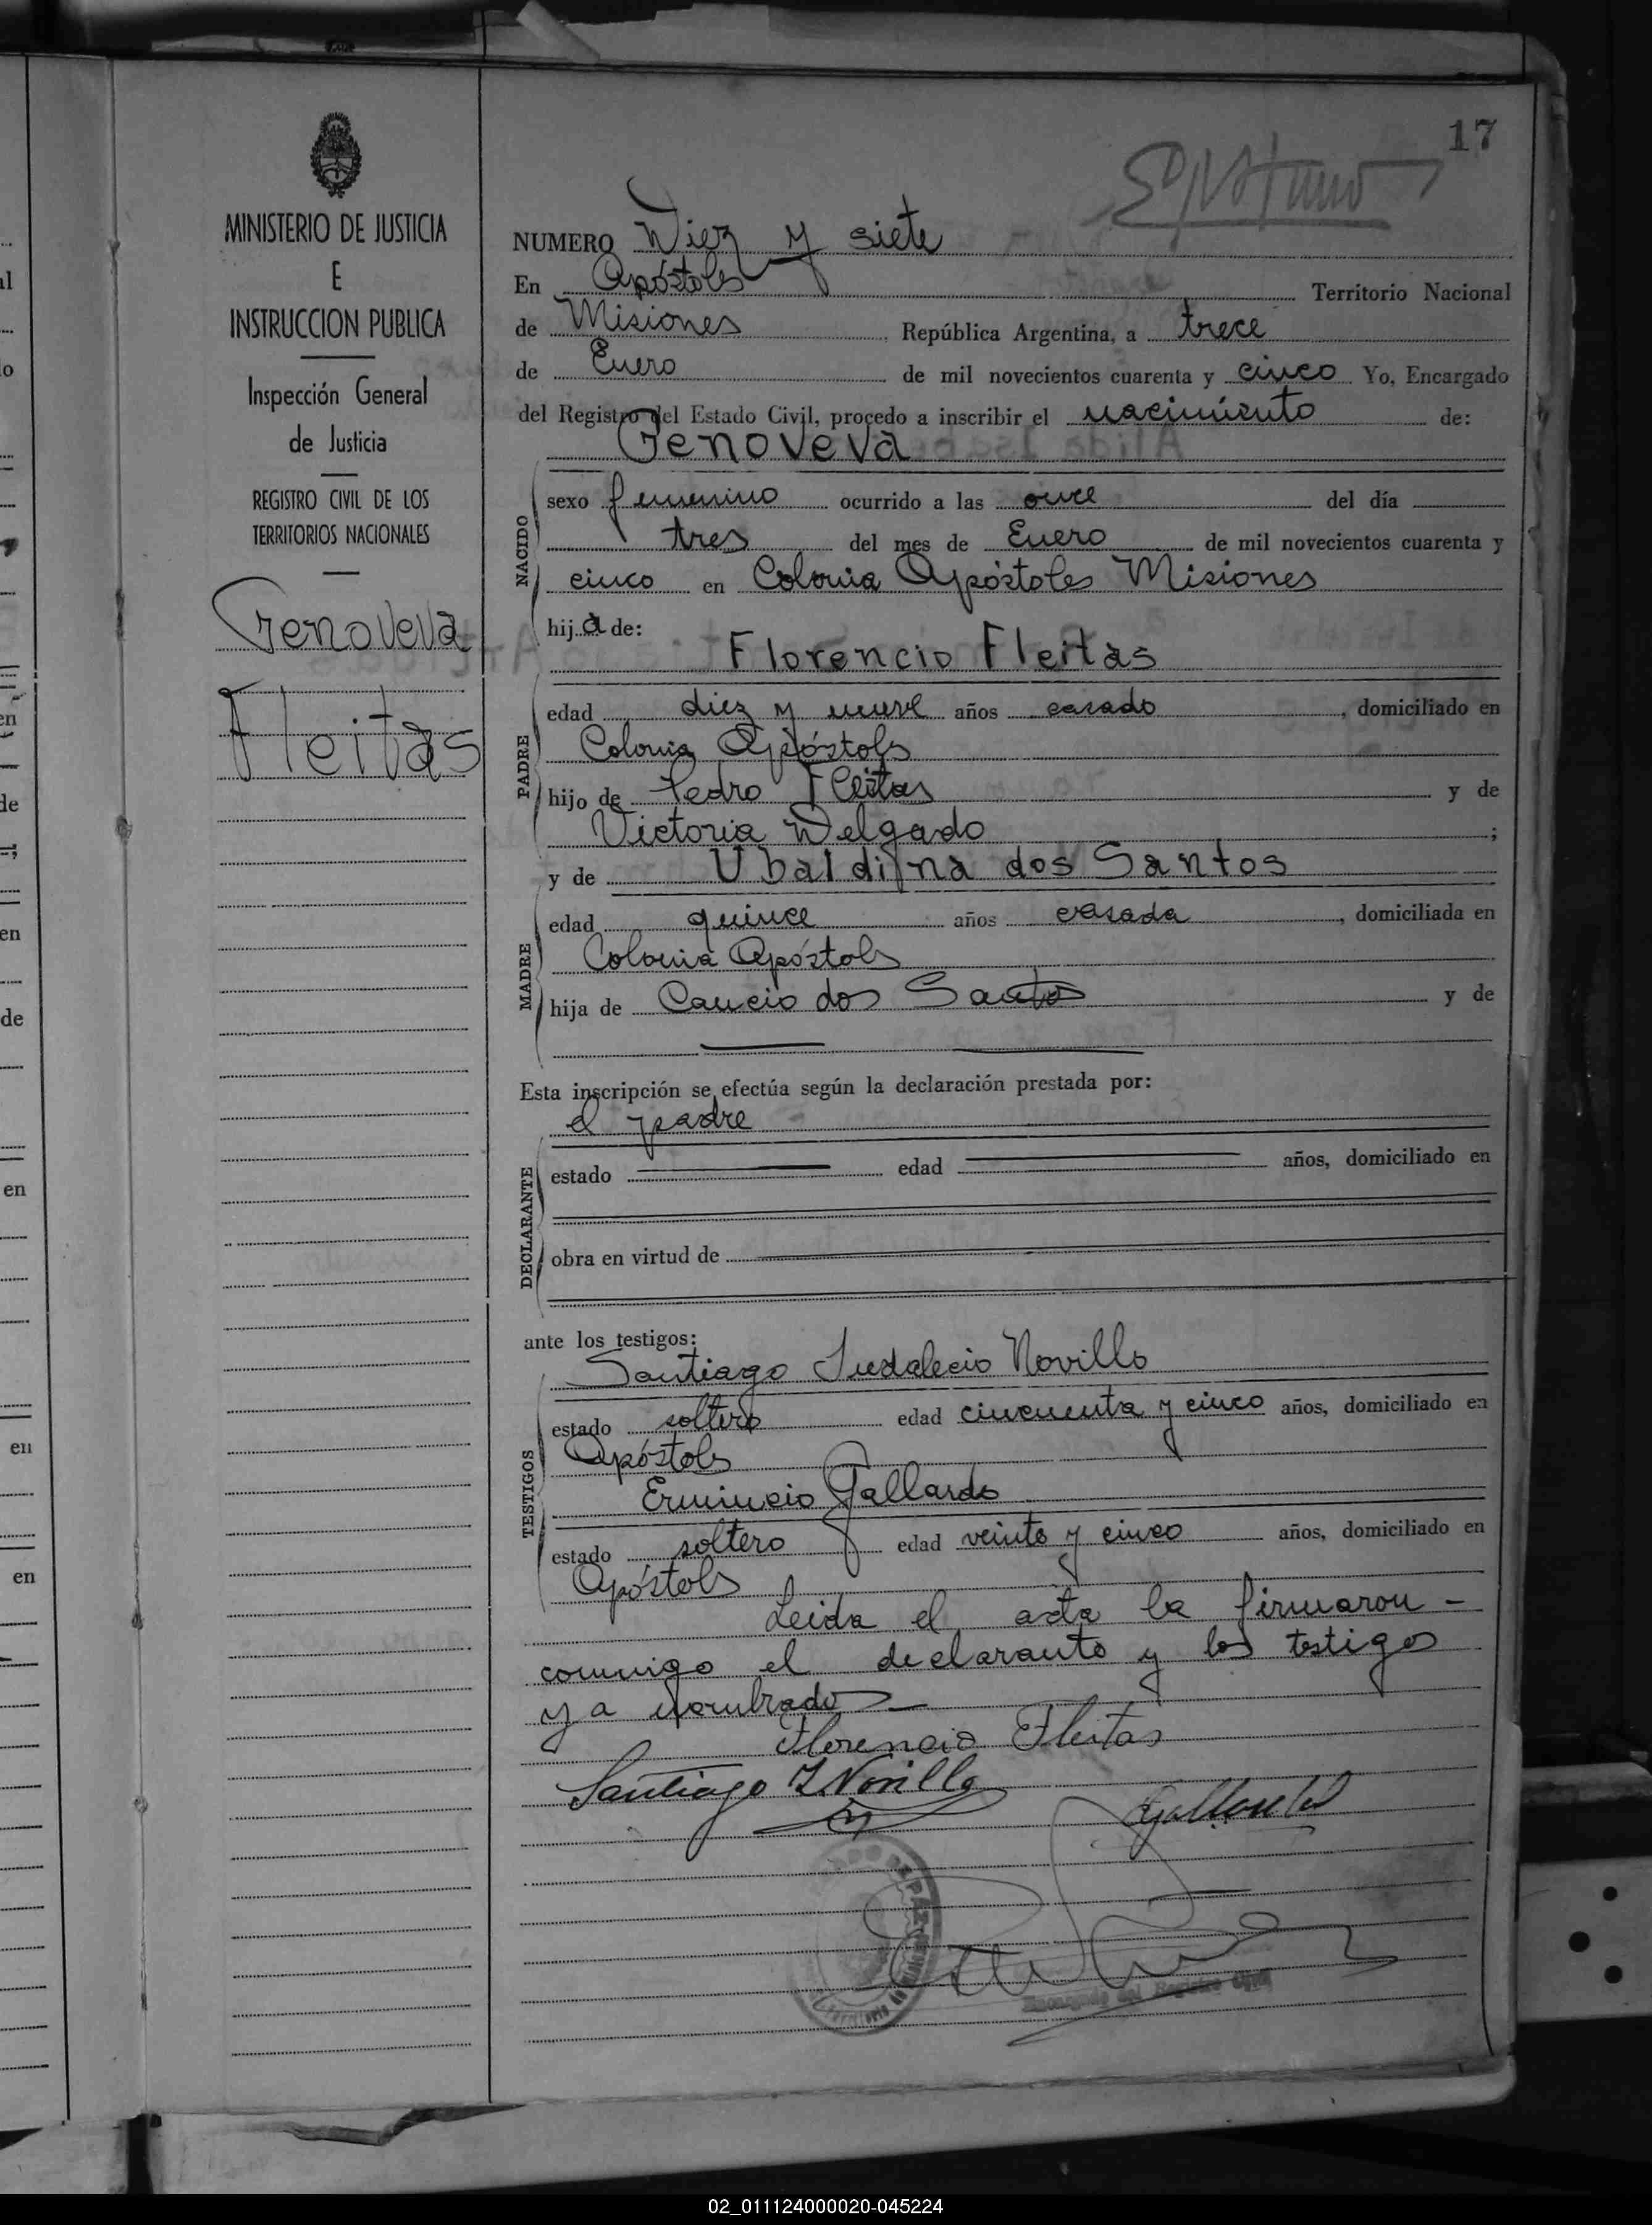 17
MINISTERIO DE JUSTICIA
E
INSTRUCCION PUBLICA
Inspección General
de Justicia
REGISTRO CIVIL DE LOS
TERRITORIOS NACIONALES
Genoveva
Fleitas
NUMERO Diez y siete
En Apóstoles Territorio Nacional
de Misiones, República Argentina, a trece
de Enero de mil novecientos cuarenta y cinco Yo, Encargado
del Registro del Estado Civil, procedo a inscribir el nacimiento de:
Genoveva
NACIDO
sexo femenino ocurrido a las once del día
tres del mes de Enero de mil novecientos cuarenta y
cinco en Colonia Apóstoles Misiones
hija de:
Florencio Fleitas
PADRE
edad diez y nueve años casado, domiciliado en
Colonia Apóstols
hijo de Pedro Fleitas y de
Victoria Delgado;
y de Ubaldina dos Santos
MADRE
edad quince años casada, domiciliada en
Colonia Apóstols
hija de Cancio dos Santos y de
Esta inscripción se efectúa según la declaración prestada por:
el padre
DECLARANTE
estado edad años, domiciliado en
obra en virtud de
ante los testigos:
Santiago Indalecio Novillo
TESTIGOS
estado soltero edad cincuenta y cinco años, domiciliado en
Apóstols
Ermincio Gallardo
estado soltero edad veinte y cinco años, domiciliado en
Apóstols
Leida el acta la firmaron -
conmigo el declarante y los testigos
ya nombrados
Florencio Fleitas
Santiago I Novillo
Gallardo
Encargado del Registro Civil
02_011124000020-045224